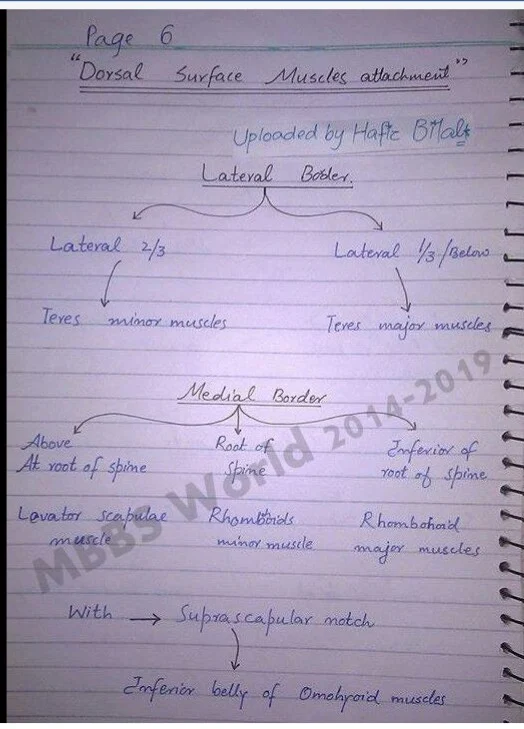 Page 6
"Dorsal Surface Muscles attachment"
Uploaded by Hafiz Bilal
Lateral Boder.
Lateral 2/3
Lateral 1/3 / Below
Teres minor muscles
Teres major muscles
Medial Border
Above
At root of spine
Root of
Spine
Inferior of
root of spine
Levator scapulae
muscle
Rhomboids
minor muscle
Rhombohoid
major muscles
With → Suprascapular notch
Inferior belly of Omohyoid muscles
MBBS World 2014-2019